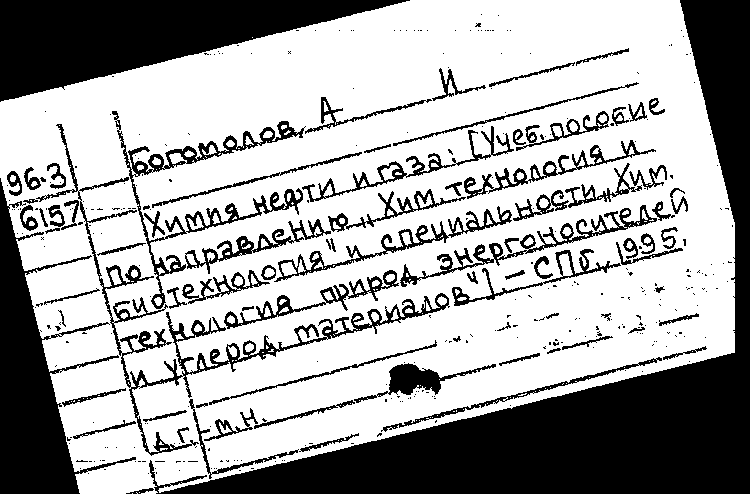 Богомолов, А И
96.3
6157
Химия нефти и газа: [Учеб. пособие
по направлению „Хим. технология и
биотехнология" и специальности „Хим.
технология природ. энергоносителей
и углерод. материалов"]. — СПб., 1995.
д.г.-м.н.